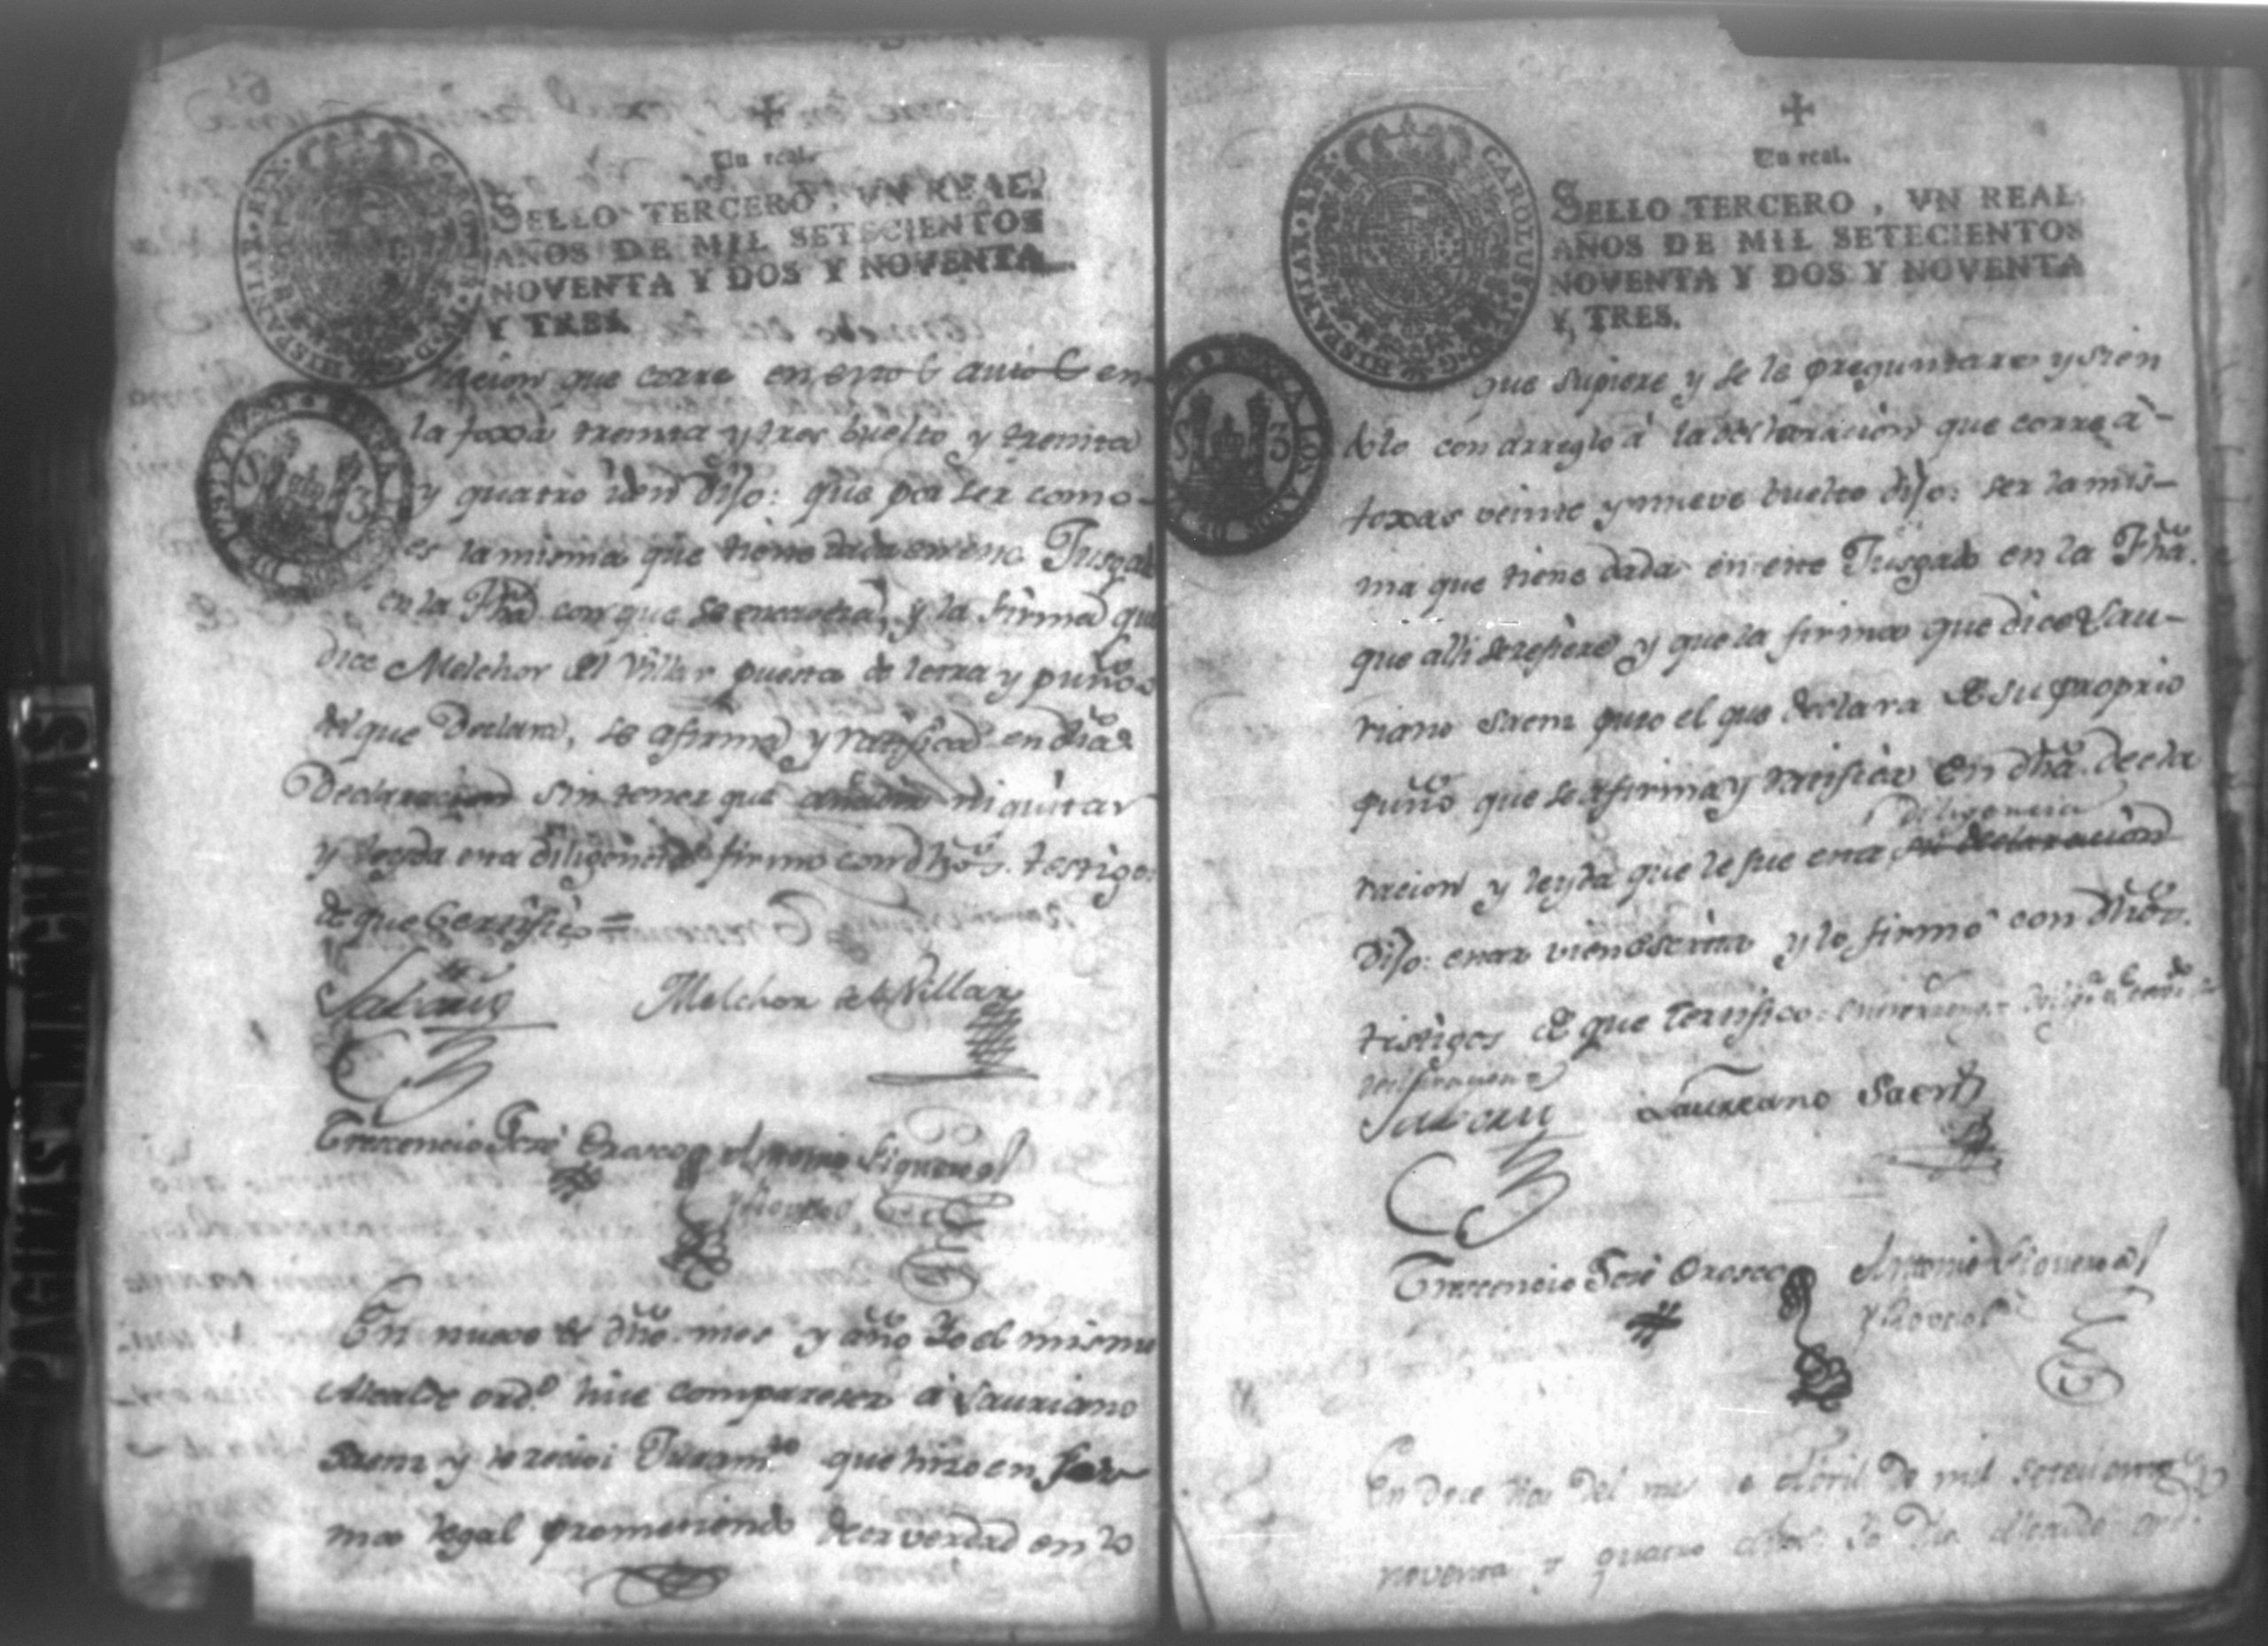 PAGINAS MANCHADAS
Un real.
SELLO TERCERO, VN REAL,
AÑOS DE MIL SETECIENTOS
NOVENTA Y DOS Y NOVENTA
Y TRES.
racion que corre en esto autos en
la foxa treinta y tres buelto y treinta
y quatro dijo: que por ser como
es la misma que tiene dada en este Jusgado
en la Fha con que se encuentra, y la firma que
dice Melchor del Villar puesta de letra y puño
del que Declara, se afirma y ratifica en dha
Declaracion sin tener que añadir ni quitar
y leyda esta diligencia firmo con dhos. testigos
de que Certifico =
Melchor del Villar
José Orosco Antonio Figueroa
En nueve de dho mes y año Yo el mismo
Alcalde ordo. hice compareser á Lauriano
Saenz y le recivi Juramto. que hizo en for
ma legal prometiendo decir verdad en lo
Un real.
SELLO TERCERO, VN REAL,
AÑOS DE MIL SETECIENTOS
NOVENTA Y DOS Y NOVENTA
Y TRES.
HISPANIAR. REX. CAROLUS
que supiere y se le preguntare y sien
dolo con arreglo á la declaracion que corre á
foxas veinte y nueve buelto dijo: ser la mis-
ma que tiene dada en este Jusgado en la Fha.
que alli se refiere y que la firma que dice Lau-
riano Saenz puso el que declara de su proprio
puño que se afirma y ratifica en dha. decla
Diligencia
racion y leyda que le fue esta su declaracion
Dijo: estar vien escrita y lo firmó con dhos.
testigos de que Certifico
Laureano Saenz
José Orosco Antonio Figueroa
En doce dias del mes de Abril de mil setecientos
noventa y quatro años Yo dho. Alcalde ord.